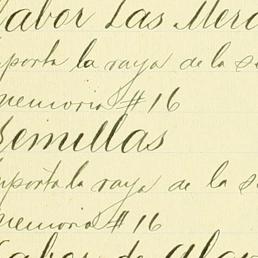 Labor Las Merc
mporta la raya de la se
memoria #16
Semillas
mporta la raya de la s
memoria #16
Labor de Alar